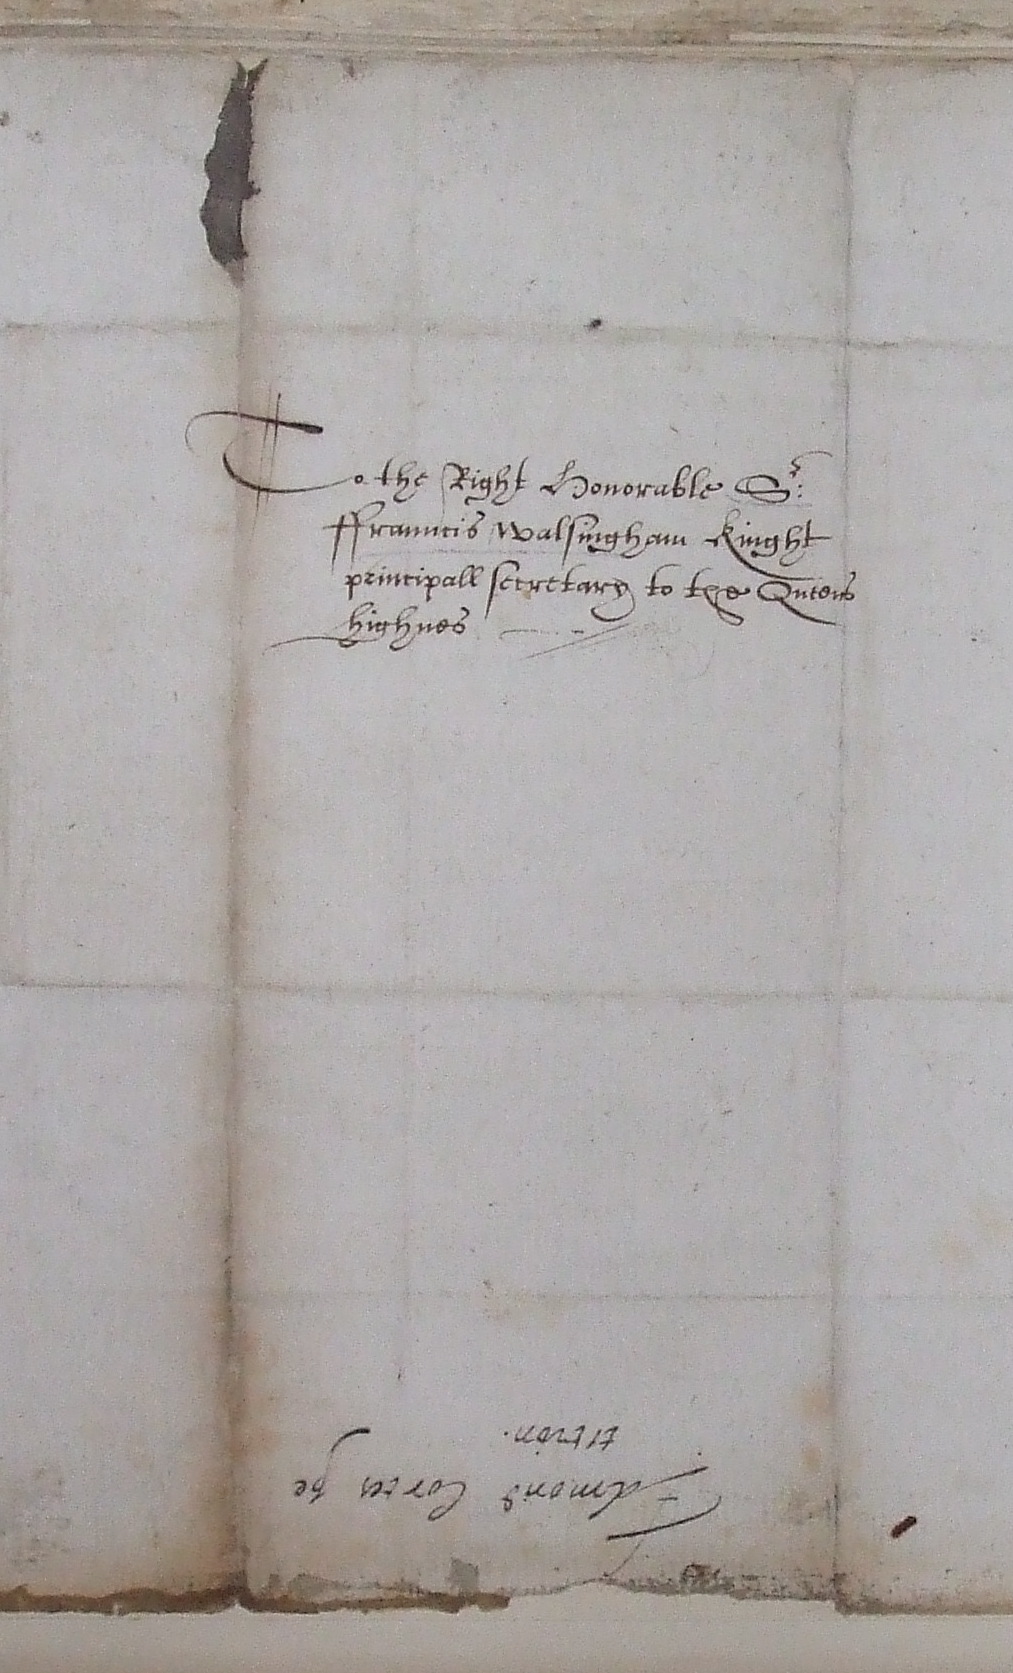 To the Right Honorable Sr:
ffrauncis Walsingham Knight
principall secretary to the Queens
highnes
Edmond pe
tition.